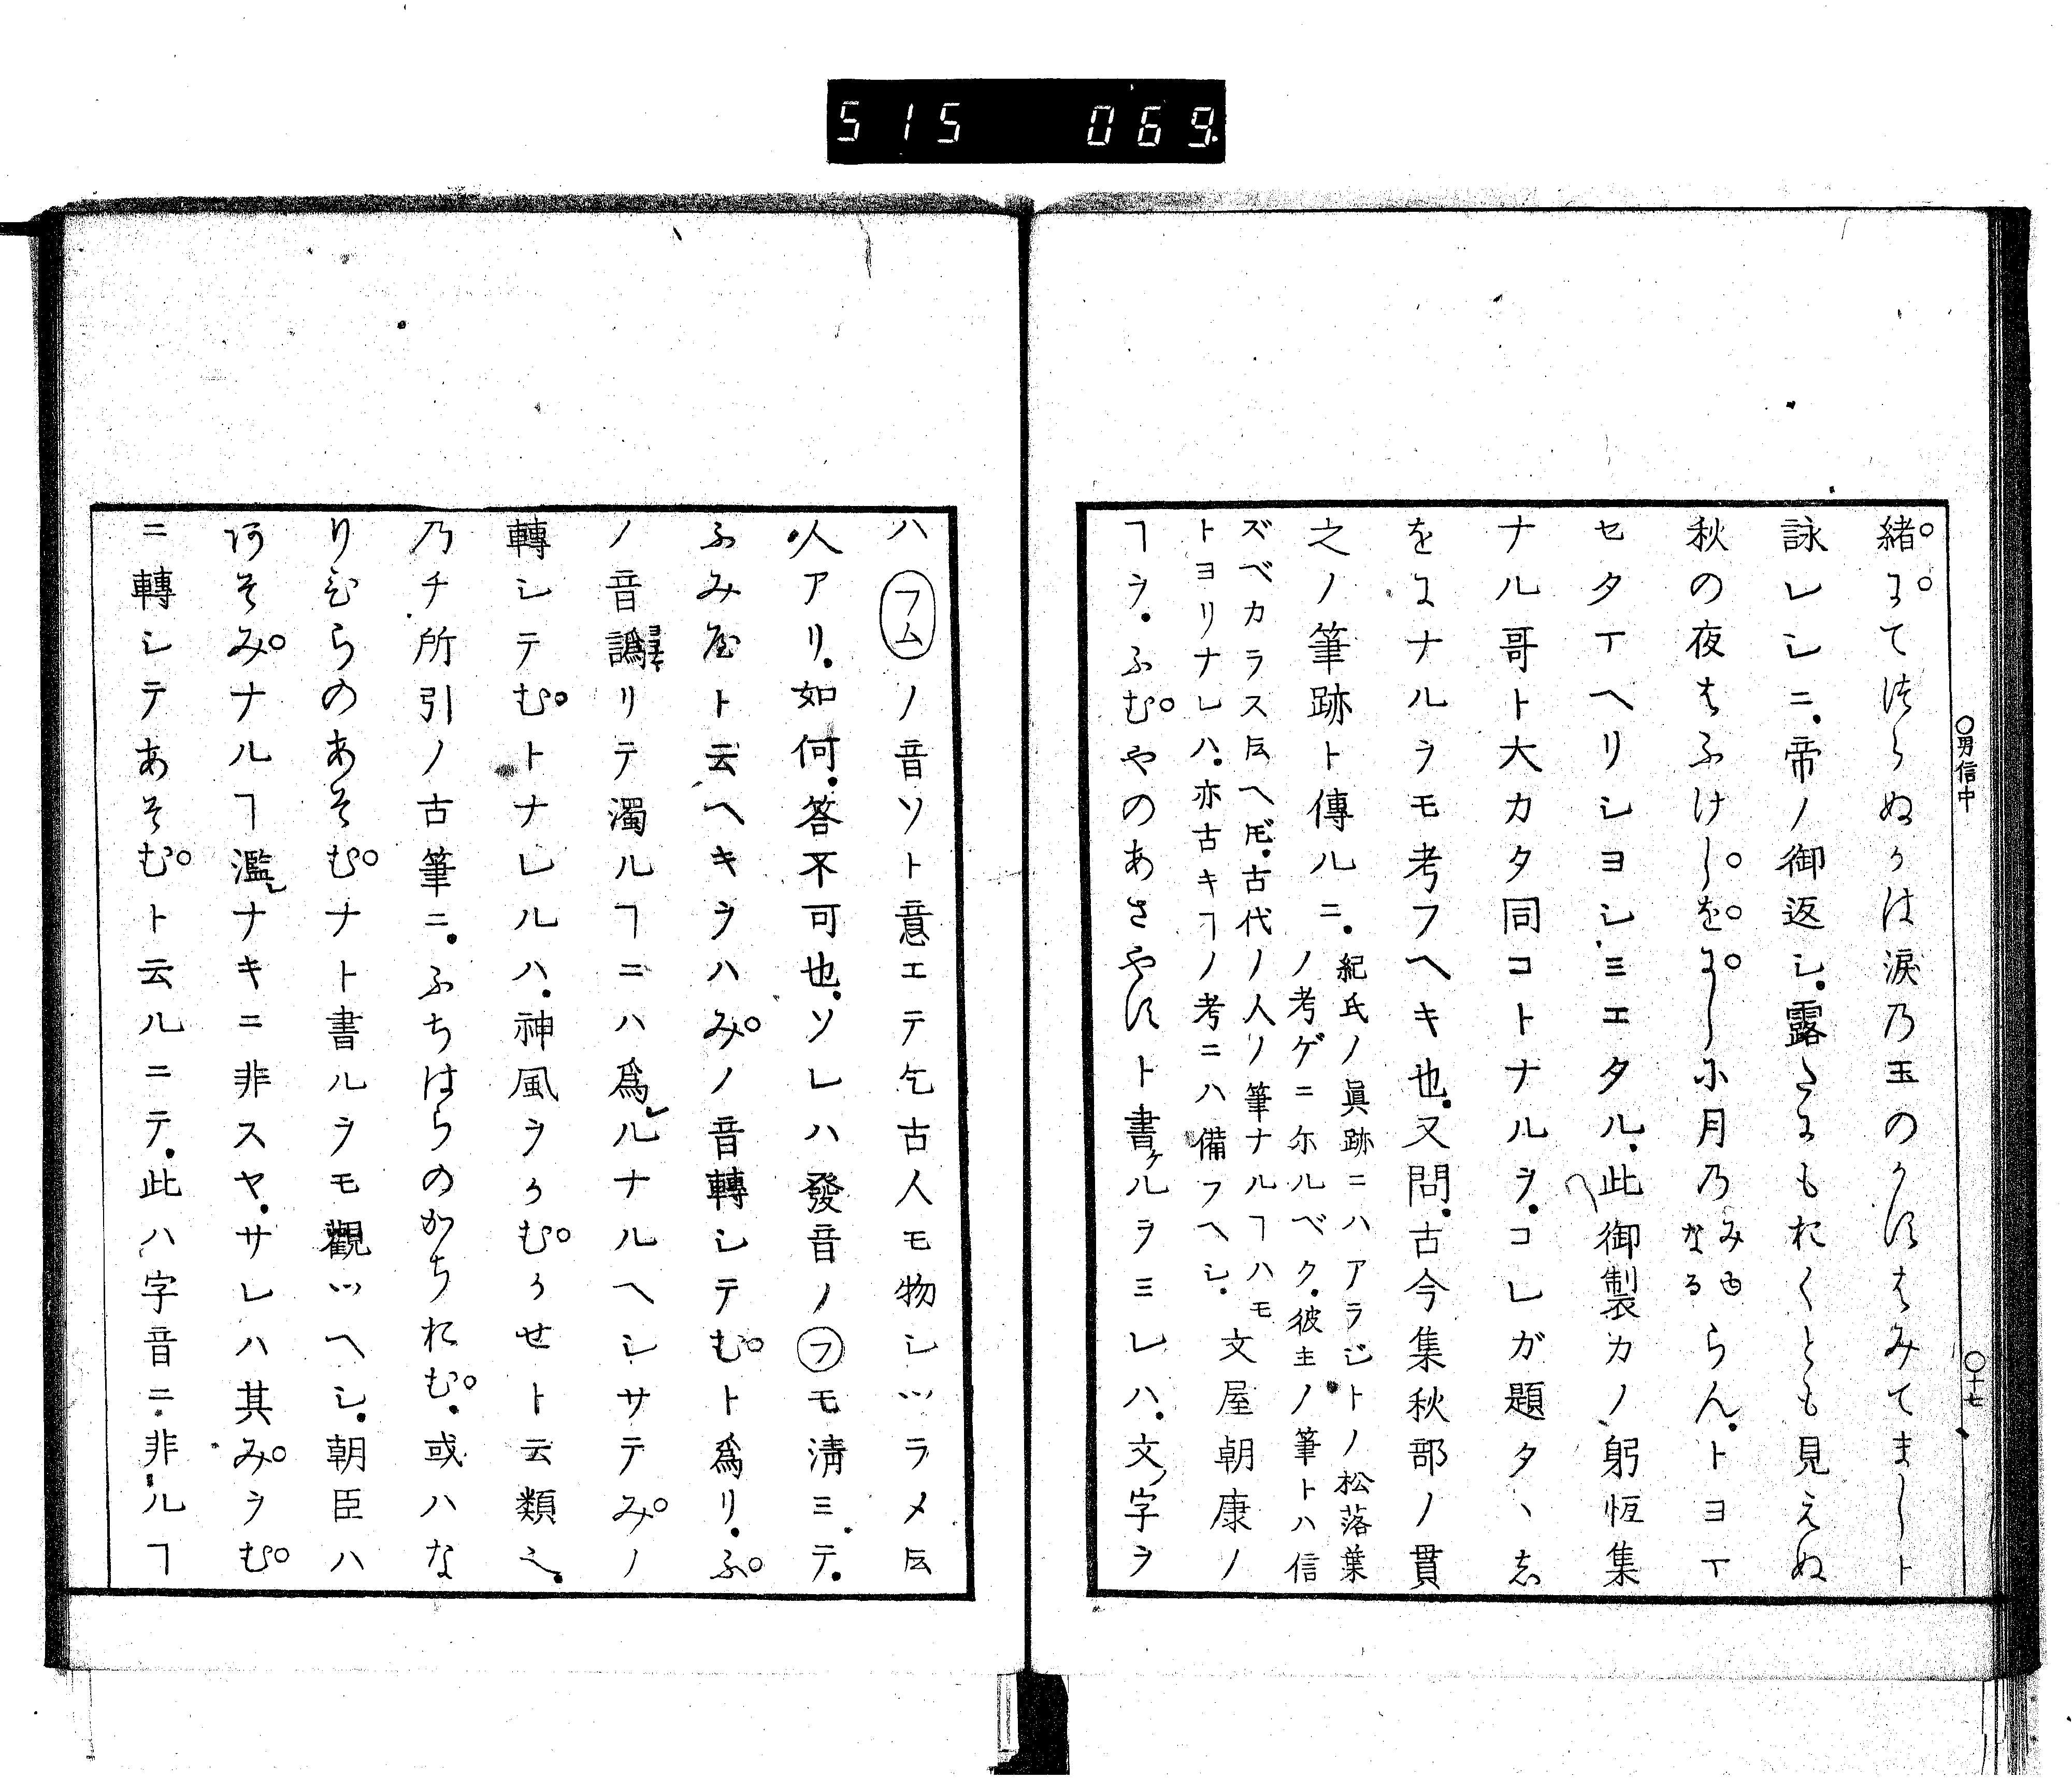 515 069.
○男信中
○十七
緒にてぬは涙乃玉のみてト
詠レシニ、帝ノ御返シ、露たにもおくとも見えぬ
秋の夜はふけしをにし小月乃みゆらん、トヨㄒ
なる
セタㄒヘリシヨシミエタル、此御製カノ躬恆集
ナル哥ト大カタ同コトナルヲ、コレガ題タヽし
をにナルヲモ考フヘキ也、又問、古今集秋部ノ貫
之ノ筆跡ト傳ルニ、紀氏ノ眞跡ニハアラジトノ松落葉
ノ考ゲニ尓ルベク、彼主ノ筆トハ信
ズベカラスヘ、古代ノ人ノ筆ナルヿハモ
トヨリナレハ、亦古キヿノ考ニハ備フヘシ、
文屋朝康ノ
ヿヲ、ふむやのあさやすト書ケルヲミレハ、文ノ字ヲ
ハフムノ音ソト意エテ乞古人モ物シツラメ𪜈
人アリ、如何、答不可也、ソレハ發音ノフモ清ミテ、
ふみ屋ト云ヘキヲハみノ音轉シテむト爲リ、ふ
ノ音譌リテ濁ルヿニハ爲ルナルヘシサテみノ
轉シテむトナレルハ、神風ヲかむかせト云類
乃チ所引ノ古筆ニ、ふちはらのかちおむ、或ハな
りひらのあそむナト書ルヲモ觀ツヘシ、朝臣ハ
阿そみナルヿ濫ナキニ非スヤ、サレハ其みヲむ
ニ轉シテあそむト云ルニテ、此ハ字音ニ非ルヿ